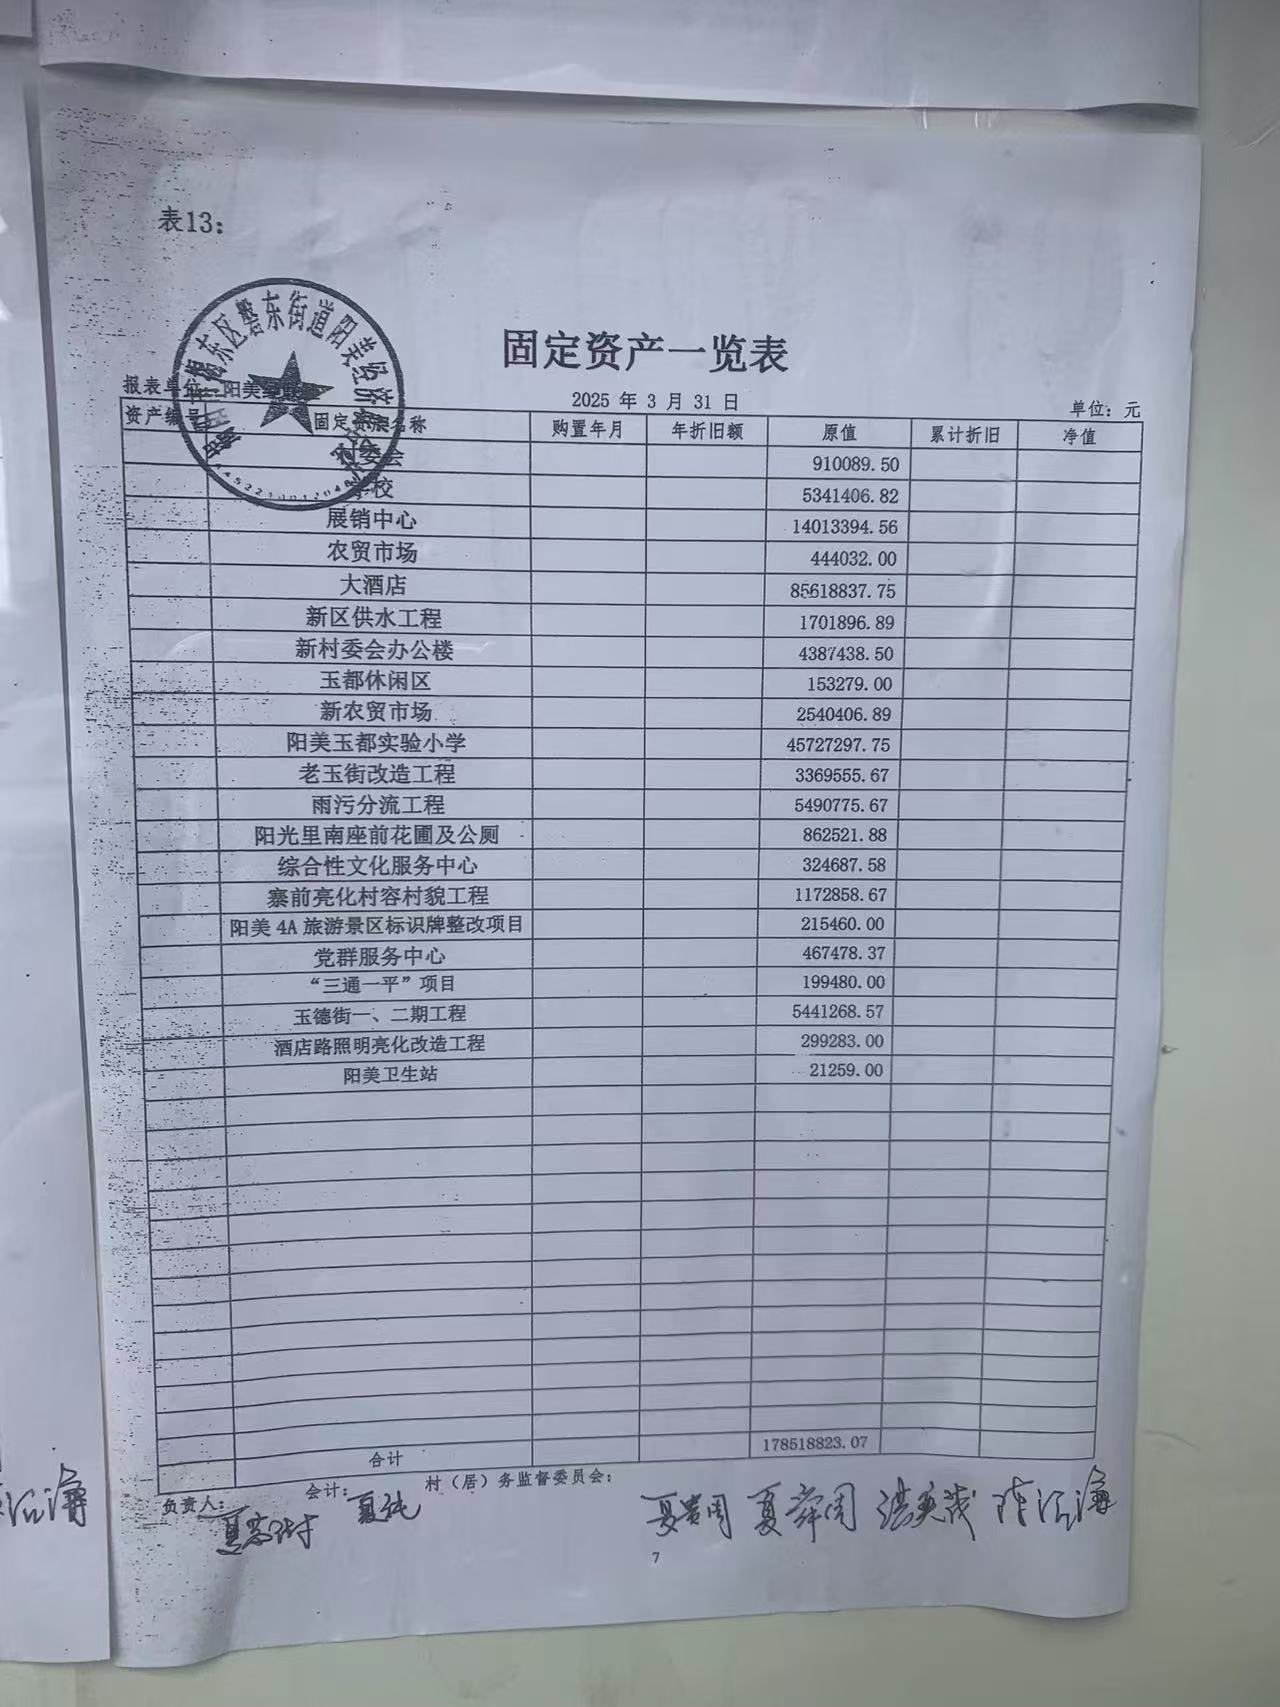 表13:
揭东区磐东街道阳美经济
固定资产一览表
报表单位 阳美
2025 年 3 月 31 日
单位: 元
资产编号 固定资产名称 购置年月 年折旧额 原值 累计折旧 净值
村委会 910089.50
学校 5341406.82
展销中心 14013394.56
农贸市场 444032.00
大酒店 85618837.75
新区供水工程 1701896.89
新村委会办公楼 4387438.50
玉都休闲区 153279.00
新农贸市场 2540406.89
阳美玉都实验小学 45727297.75
老玉街改造工程 3369555.67
雨污分流工程 5490775.67
阳光里南座前花圃及公厕 862521.88
综合性文化服务中心 324687.58
寨前亮化村容村貌工程 1172858.67
阳美 4A 旅游景区标识牌整改项目 215460.00
党群服务中心 467478.37
“三通一平”项目 199480.00
玉德街一、二期工程 5441268.57
酒店路照明亮化改造工程 299283.00
阳美卫生站 21259.00
合计 178518823.07
负责人: 会计: 村（居）务监督委员会:
7